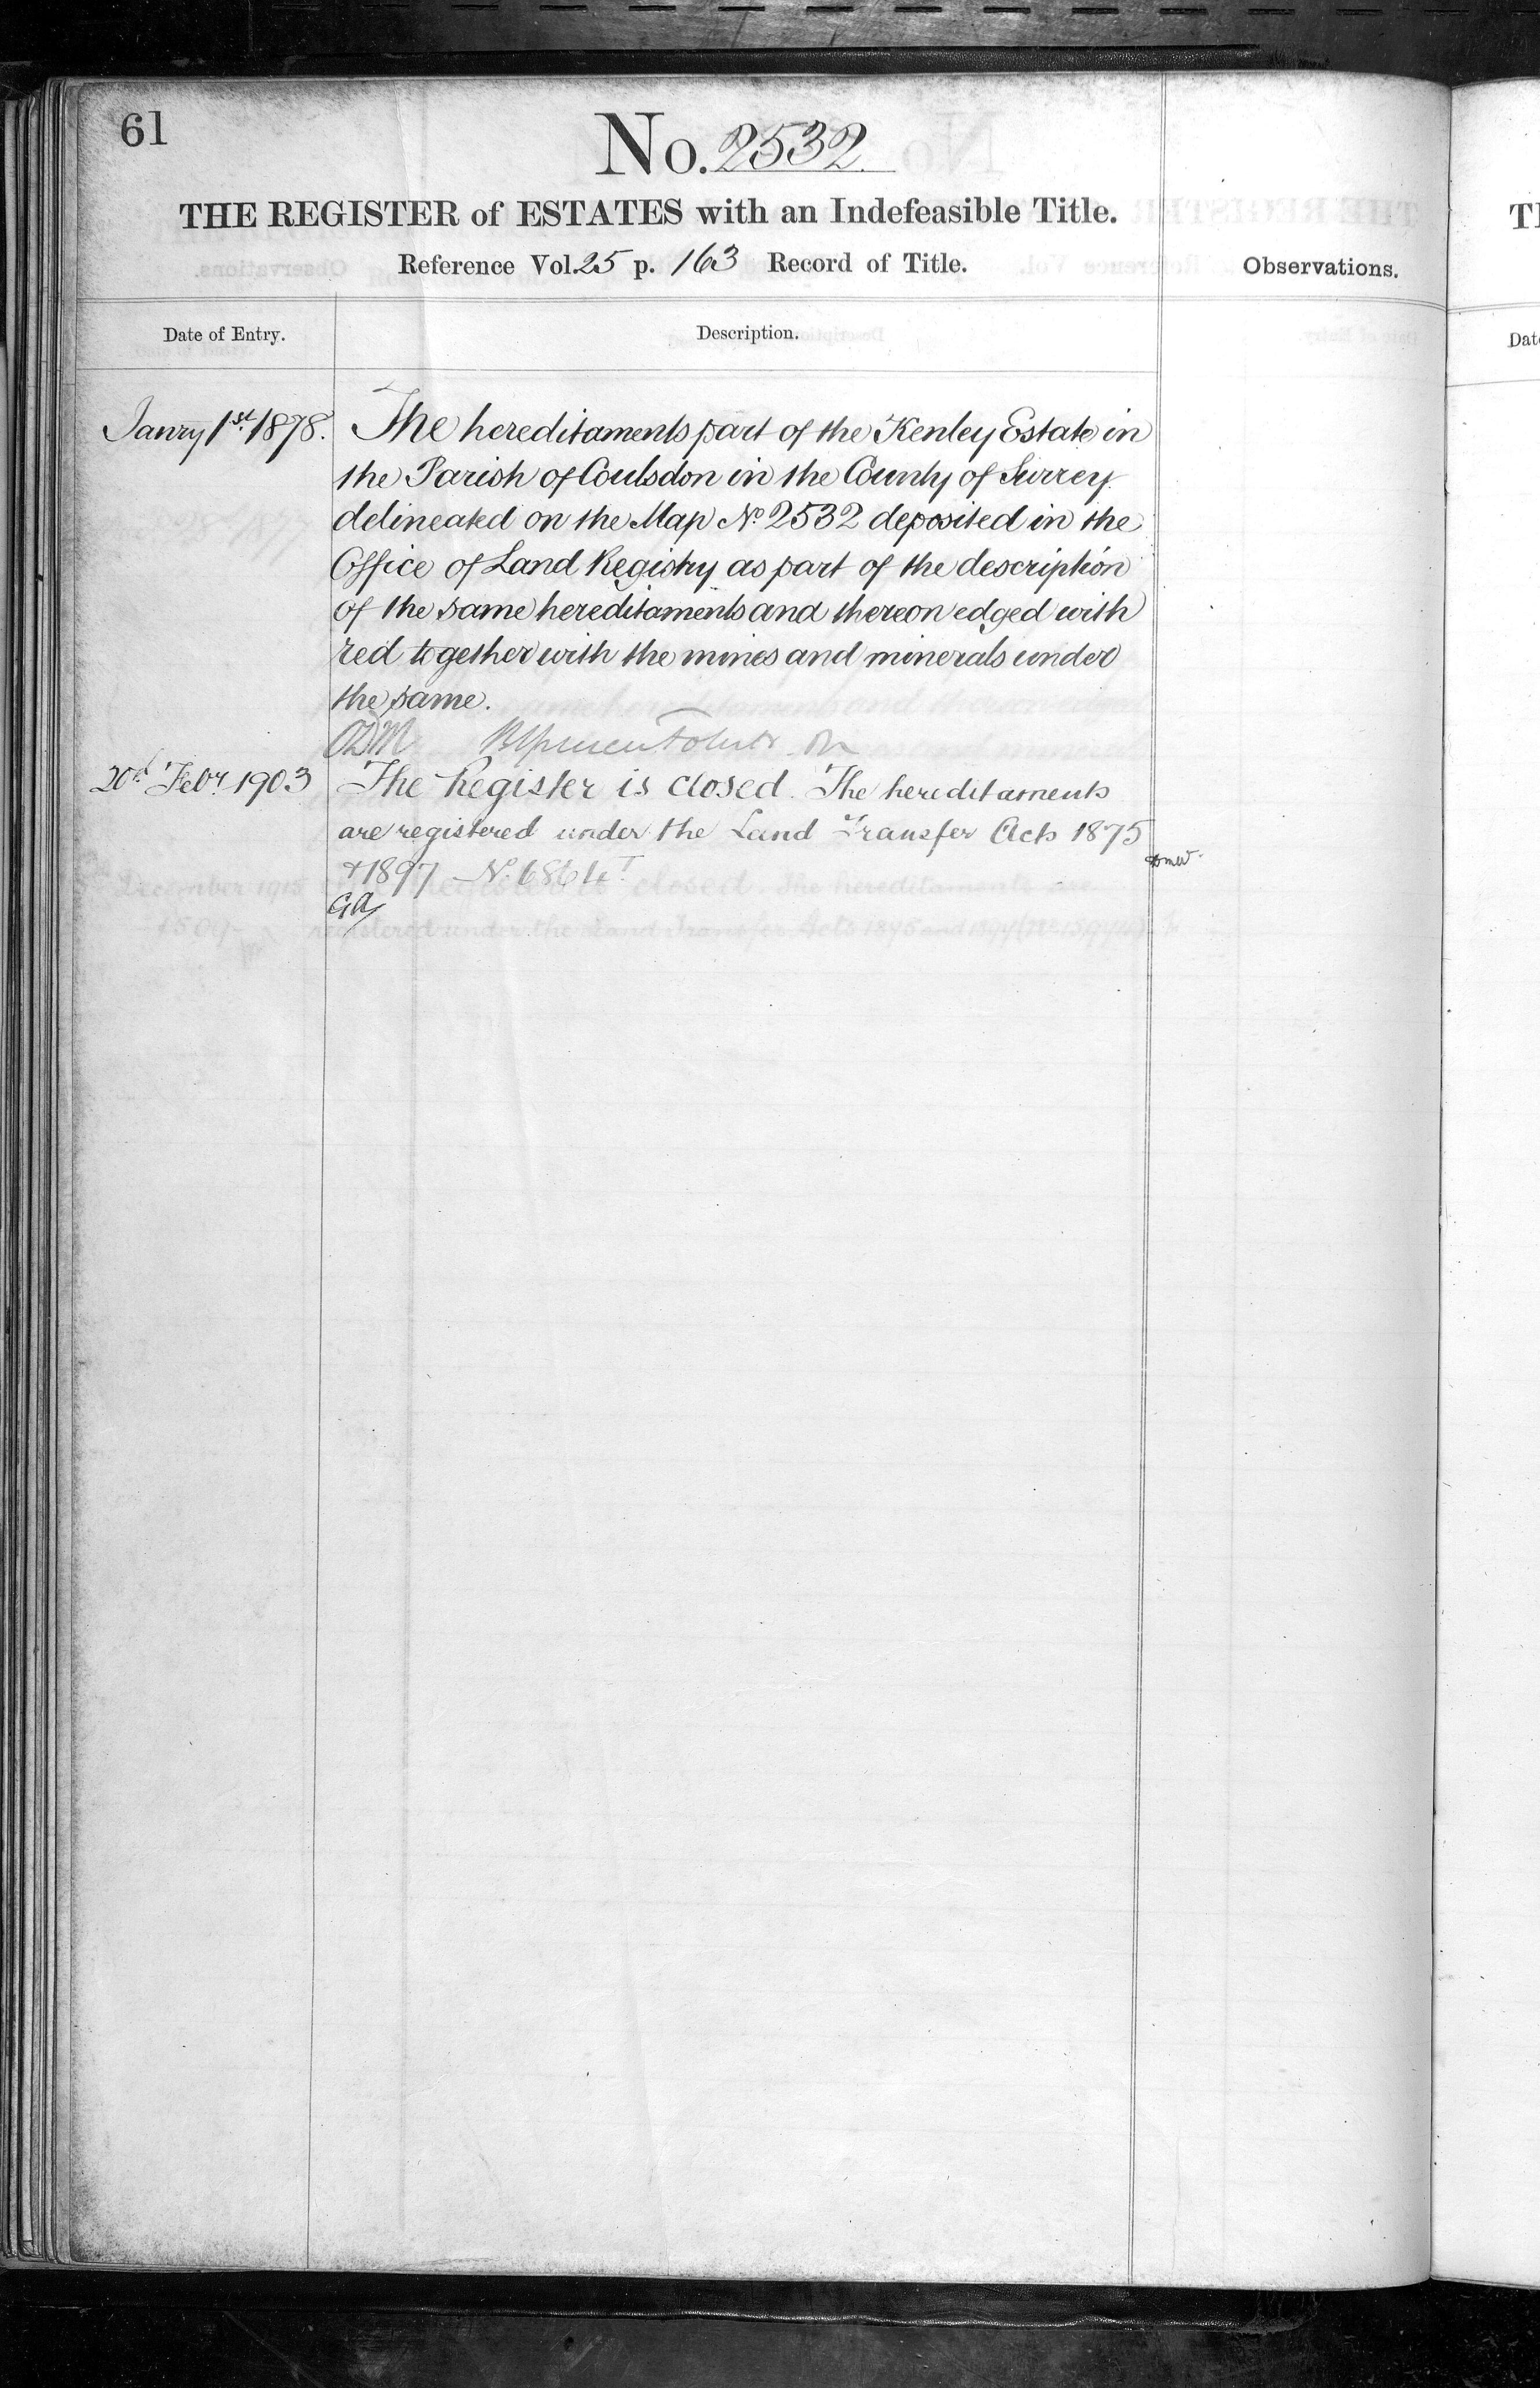 61
No. 2532
THE REGISTER of ESTATES with an Indefeasible Title.
Reference Vol. 25 p. 163 Record of Title.
Observations.
Date of Entry.
Description.
Janry 1st 1878.
The hereditaments part of the Kenley Estate in
the Parish of Coulsdon in the County of Surrey
delineated on the Map No 2532 deposited in the
Office of Land Registry as part of the description
of the same hereditaments and thereon edged with
red together with the mines and minerals under
the same.
20th Febr. 1903
The Register is closed. The hereditaments
are registered under the Land Transfer Acts 1875
+ 1897 No.
GA